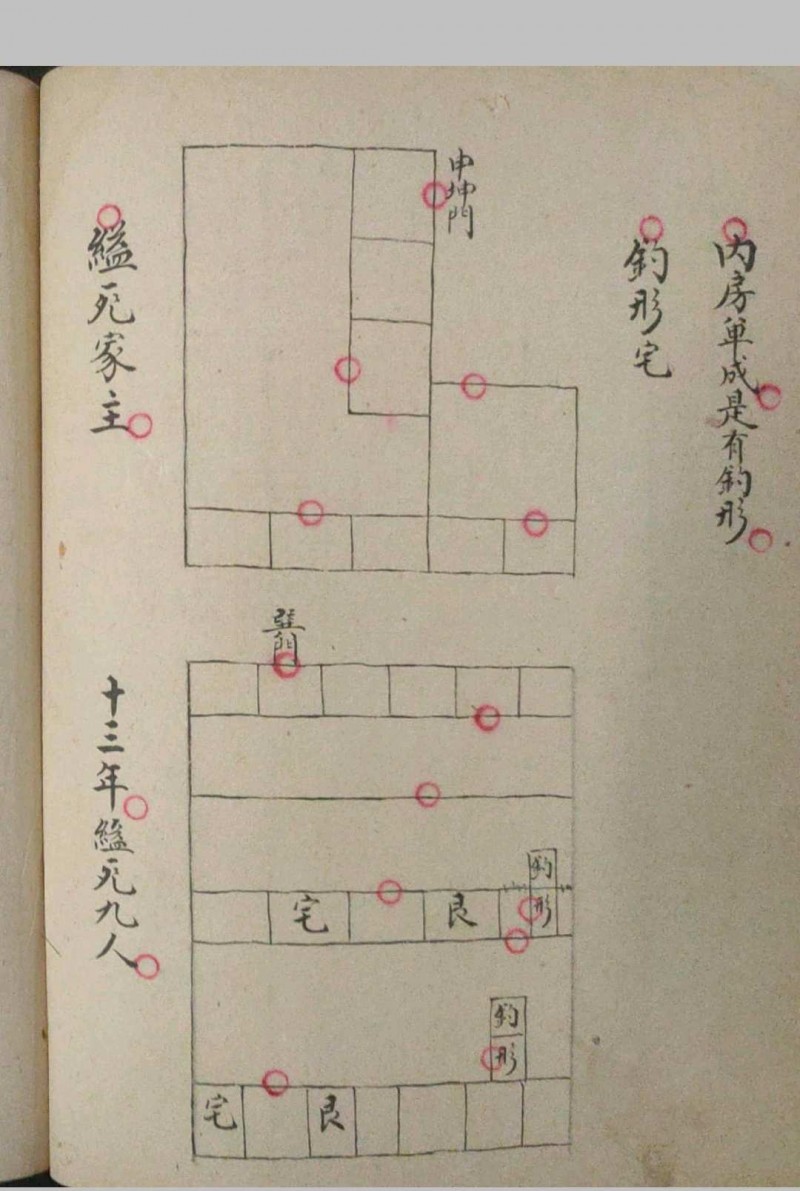 內房單成是有釣形
釣形宅
申坤門
縊死家主
巽門
釣形
宅
艮
釣形
宅
艮
十三年縊死九人